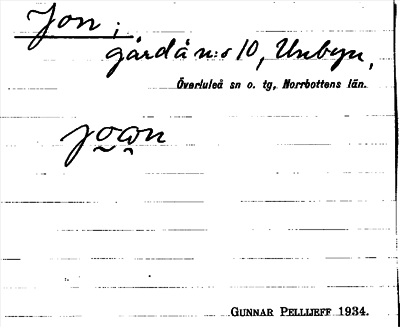 Jon;
gård å n:o 10, Unbyn,
Överluleå sn o. tg, Norrbottens län.
jo̰a̭n
GUNNAR PELLIJEFF 1934.